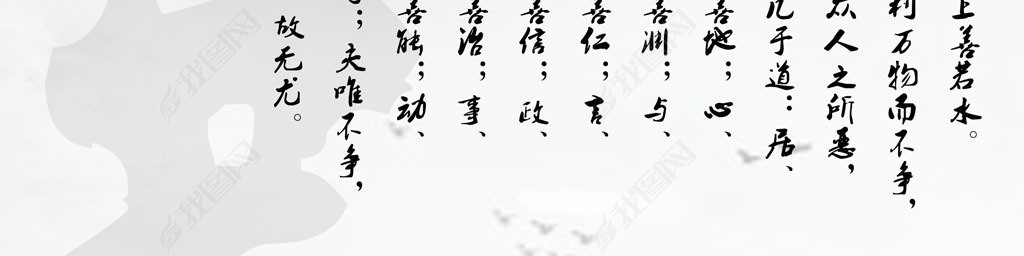 上善若水。
利万物而不争，
众人之所恶，
几于道：居、
善地；心、
善渊；与、
善仁；言、
善信；政、
善治；事、
善能；动、
；夫唯不争，
故无尤。
找图网
找图网
找图网
找图网
找图网
找图网